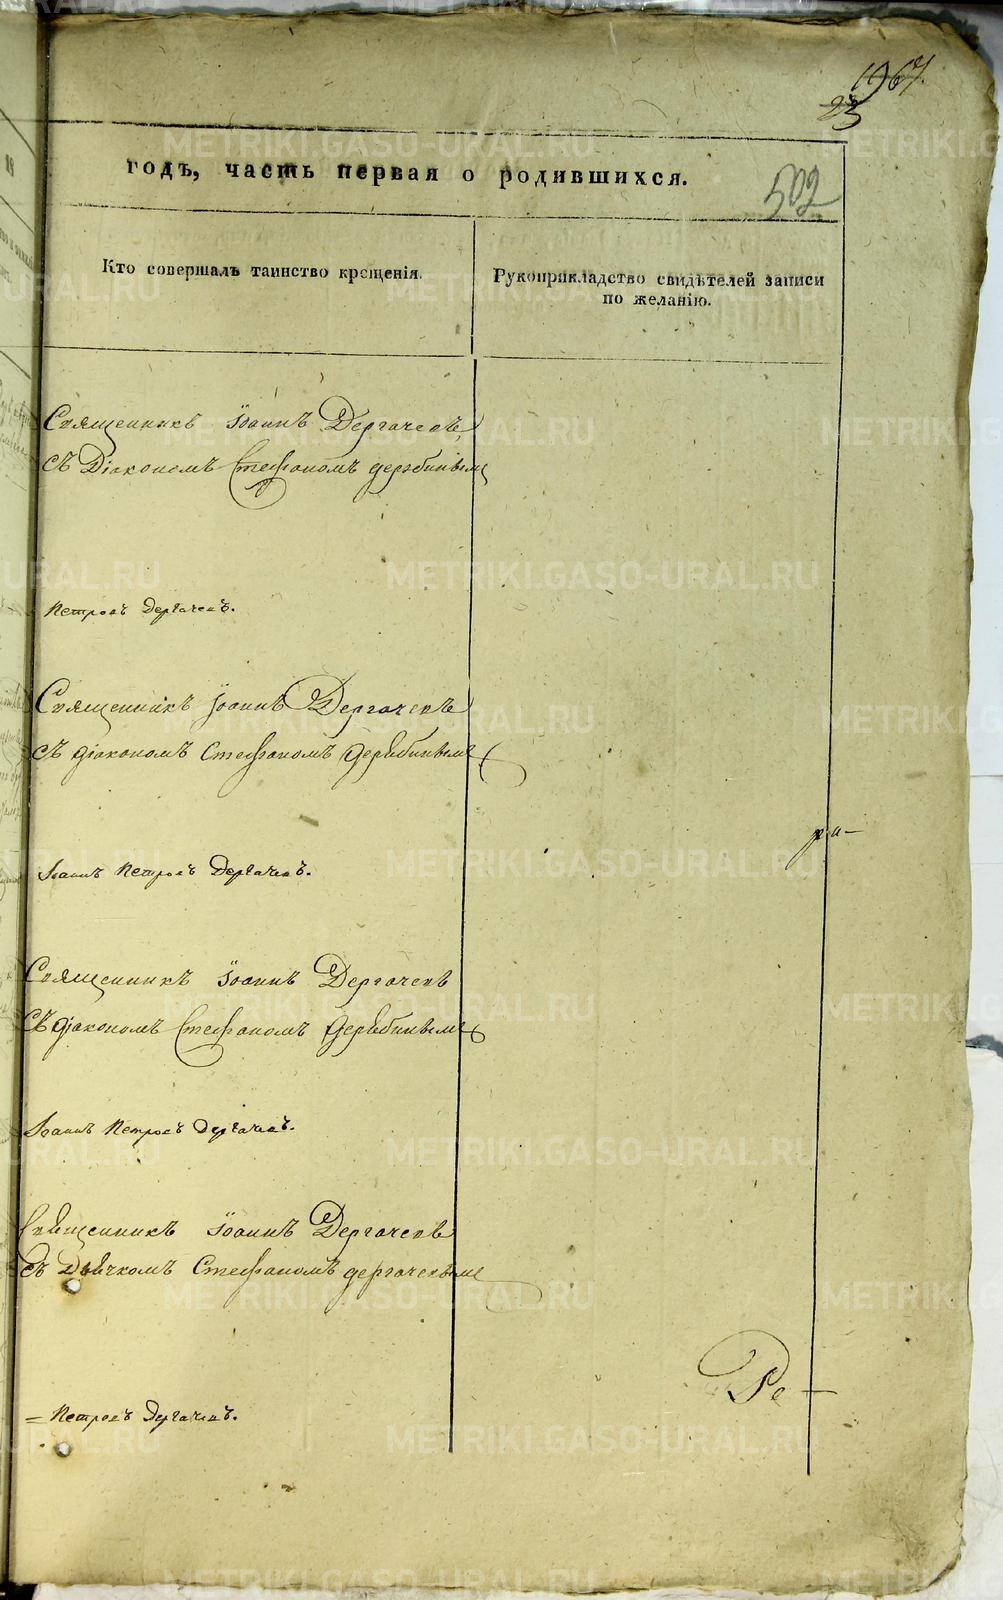 1967.
23
годъ, часть первая о родившихся.
502
Кто совершалъ таинство крещенія.
Рукоприкладство свидѣтелей записи
по желанію.
Священникъ Іоаннъ Дергачевъ,
съ Діакономъ Стефаномъ дерябинымъ
Петровъ Дергачевъ.
Священникъ Іоаннъ Дергачевъ
съ діакономъ Стефаномъ Дерябинымъ
ра-
Іоаннъ Петровъ Дергачевъ.
Священникъ Іоаннъ Дергачевъ
съ діакономъ Стефаномъ Дерябинымъ
Іоаннъ Петровъ Дергачевъ.
Священникъ Іоаннъ Дергачевъ
съ Дьячкомъ Стефаномъ дергачевымъ
Ре-
= Петровъ Дергачевъ.
METRIKI.GASO-URAL.RU